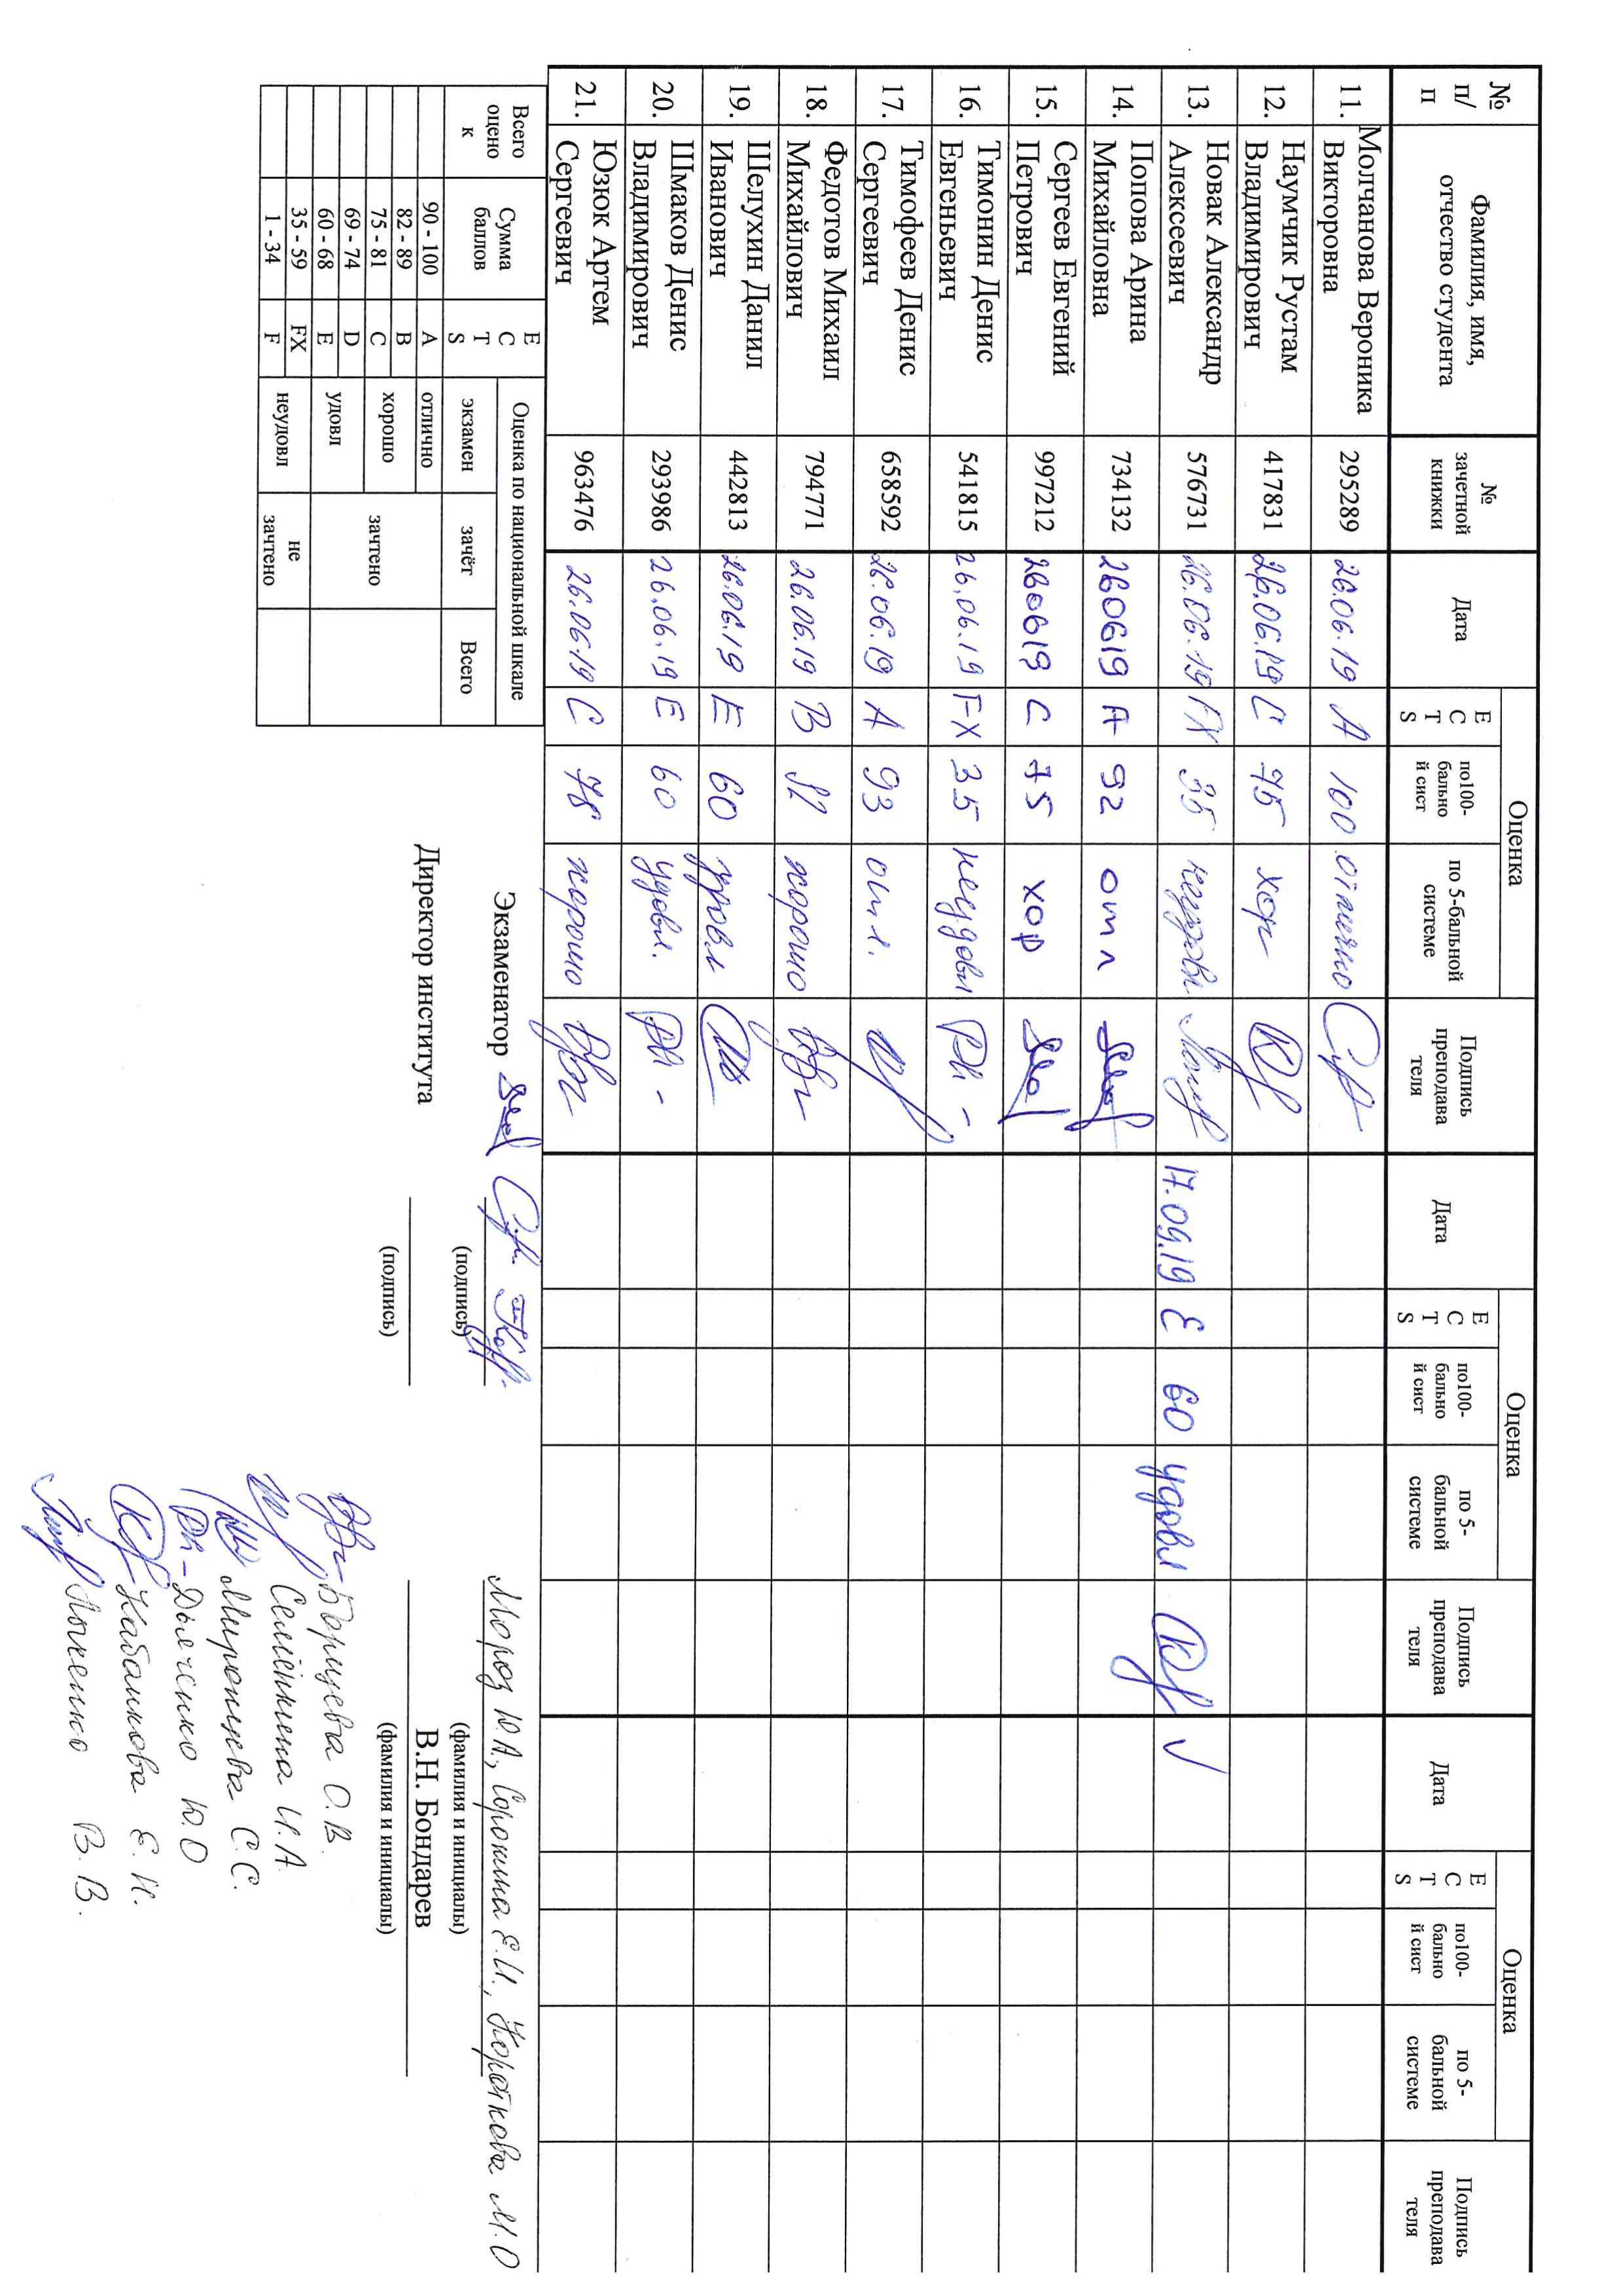 № п/п Фамилия, имя, отчество студента № зачетной книжки Дата Оценка Подпись преподава теля Дата Оценка Подпись преподава теля Дата Оценка Подпись преподава теля
ECTS по100-бально й сист по 5-бальной системе ECTS по100-бально й сист по 5-бальной системе ECTS по100-бально й сист по 5-бальной системе
11. Молчанова Вероника Викторовна 295289 26.06.19 A 100 отлично
12. Наумчик Рустам Владимирович 417831 26.06.19 C 75 хор
13. Новак Александр Алексеевич 576731 26.06.19 FX 35 неудовл 17.09.19 E 60 удовл
14. Попова Арина Михайловна 734132 260619 A 92 отл
15. Сергеев Евгений Петрович 997212 260619 C 75 хор
16. Тимонин Денис Евгеньевич 541815 26.06.19 FX 35 неудовл
17. Тимофеев Денис Сергеевич 658592 26.06.19 A 93 отл.
18. Федотов Михаил Михайлович 794771 26.06.19 B 82 хорошо
19. Шелухин Данил Иванович 442813 26.06.19 E 60 удовл
20. Шмаков Денис Владимирович 293986 26.06.19 E 60 удовл.
21. Юзюк Артем Сергеевич 963476 26.06.19 C 78 хорошо
Всего оцено к Сумма баллов ECTS Оценка по национальной шкале
экзамен зачёт Всего
90 - 100 A отлично зачтено
82 - 89 B хорошо
75 - 81 C
69 - 74 D удовл
60 - 68 E
35 - 59 FX неудовл не зачтено
1 - 34 F
Экзаменатор Мороз Ю.А., Сорокина Е.И., Короткова М.О
(подпись) (фамилия и инициалы)
Директор института В.Н. Бондарев
(подпись) (фамилия и инициалы)
Борщева О.В.
Семёнкина И.А.
Миронцева С.С.
Дьяченко Ю.О
Кабанкова Е.Н.
Лыченко В.В.